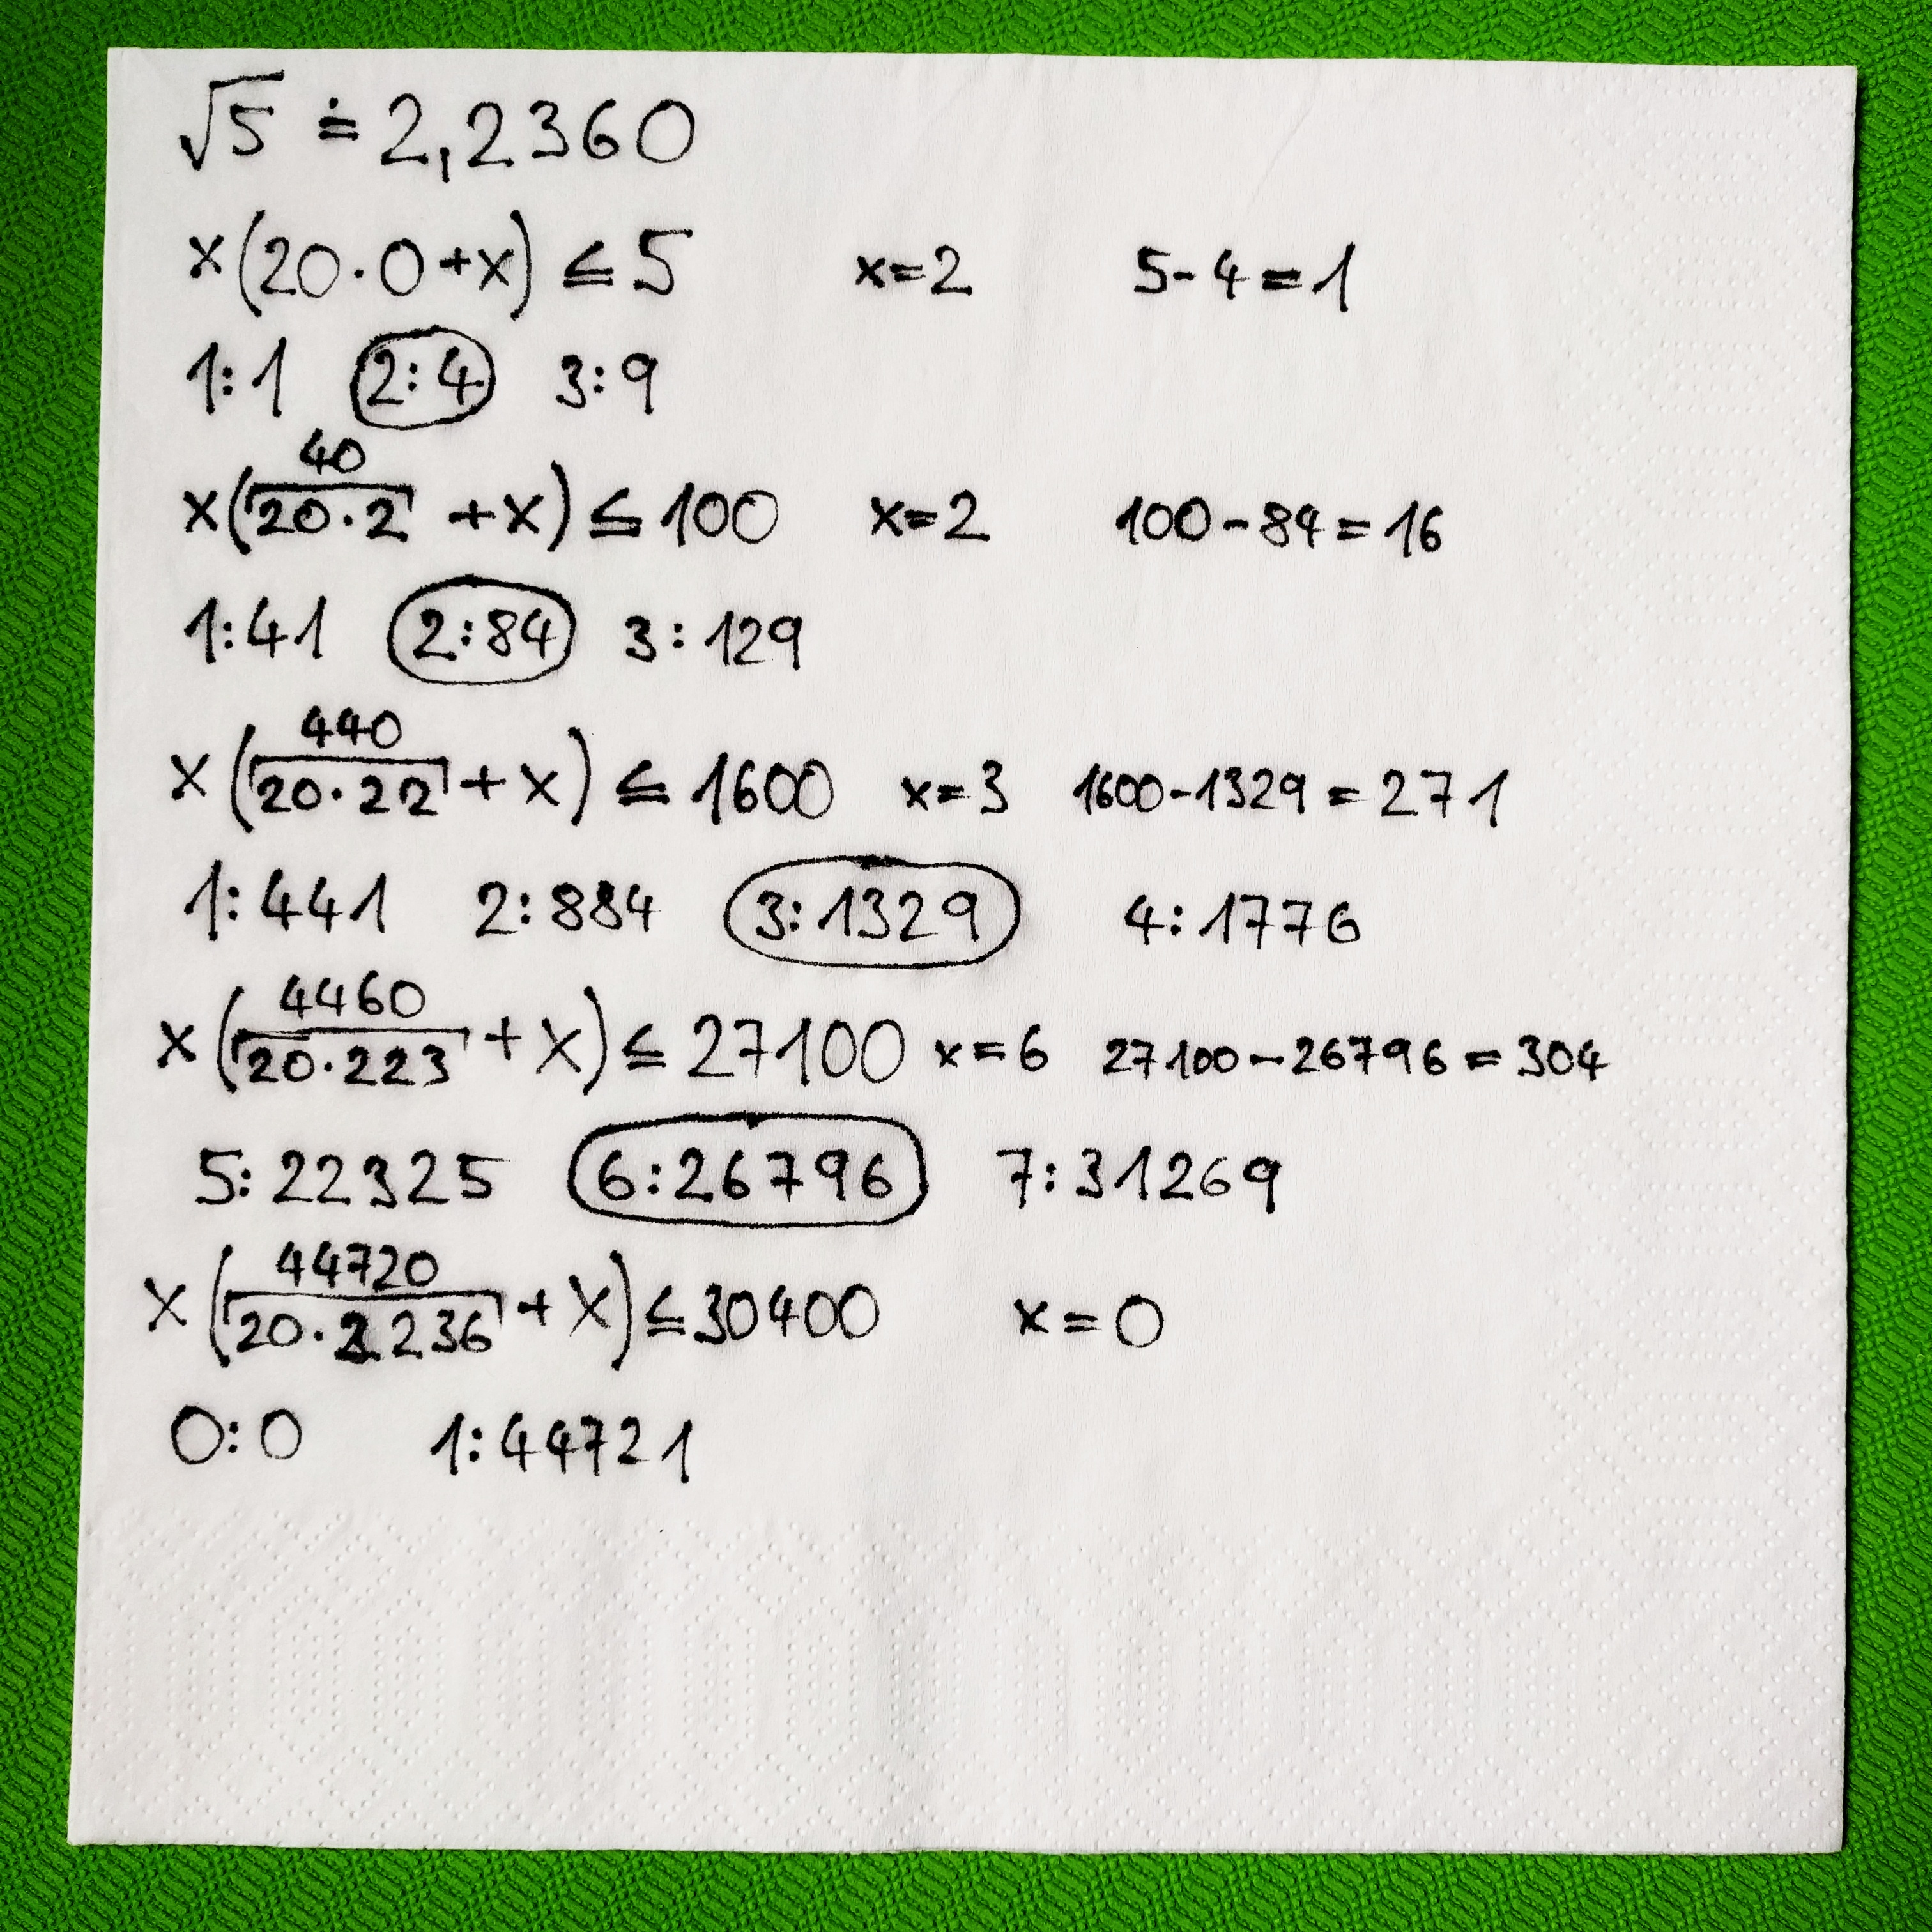 √5 ≐ 2,2360
x(20·0+x) ≤ 5 x=2 5-4=1
1:1 2:4 3:9
40
x(20·2 +x) ≤ 100 x=2 100-84=16
1:41 2:84 3:129
440
x(20·22+x) ≤ 1600 x=3 1600-1329=271
1:441 2:884 3:1329 4:1776
4460
x(20·223+x) ≤ 27100 x=6 27100-26796=304
5:22325 6:26796 7:31269
44720
x(20·2236+x) ≤ 30400 x=0
0:0 1:44721